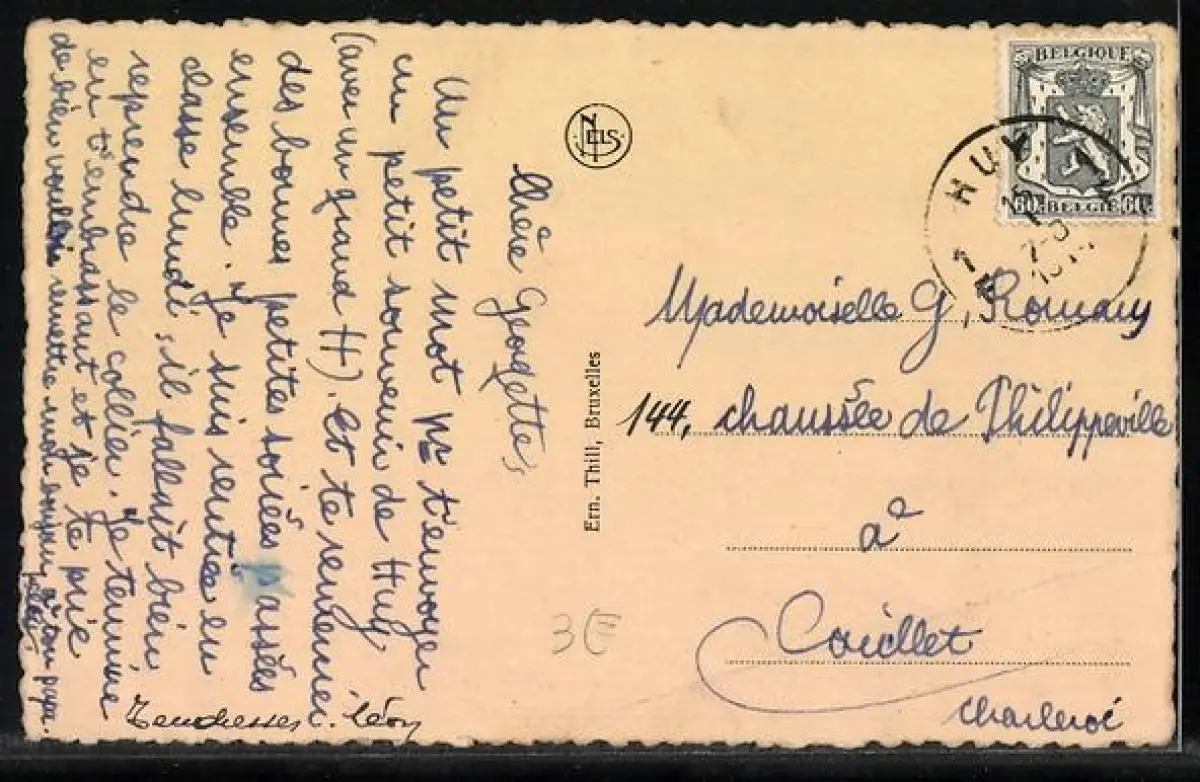 Chère Georgette,
Un petit mot pr t'envoyer
un petit souvenir de Huy
(avec un grand H). Et te remercier
des bonnes petites soirées passées
ensemble. Je suis rentrée en
classe lundi, il fallait bien
reprendre le collier. Je termine
en t'embrassant et je te prie
de bien vouloir remettre mon bonjour à ton papa.
Tendresses. Léon
NELS
Ern. Thill, Bruxelles
BELGIQUE
60 BELGIE 60
HUY
1
Mademoiselle G. Romany
144, chaussée de Philippeville
à
Couillet
Charleroi
3€